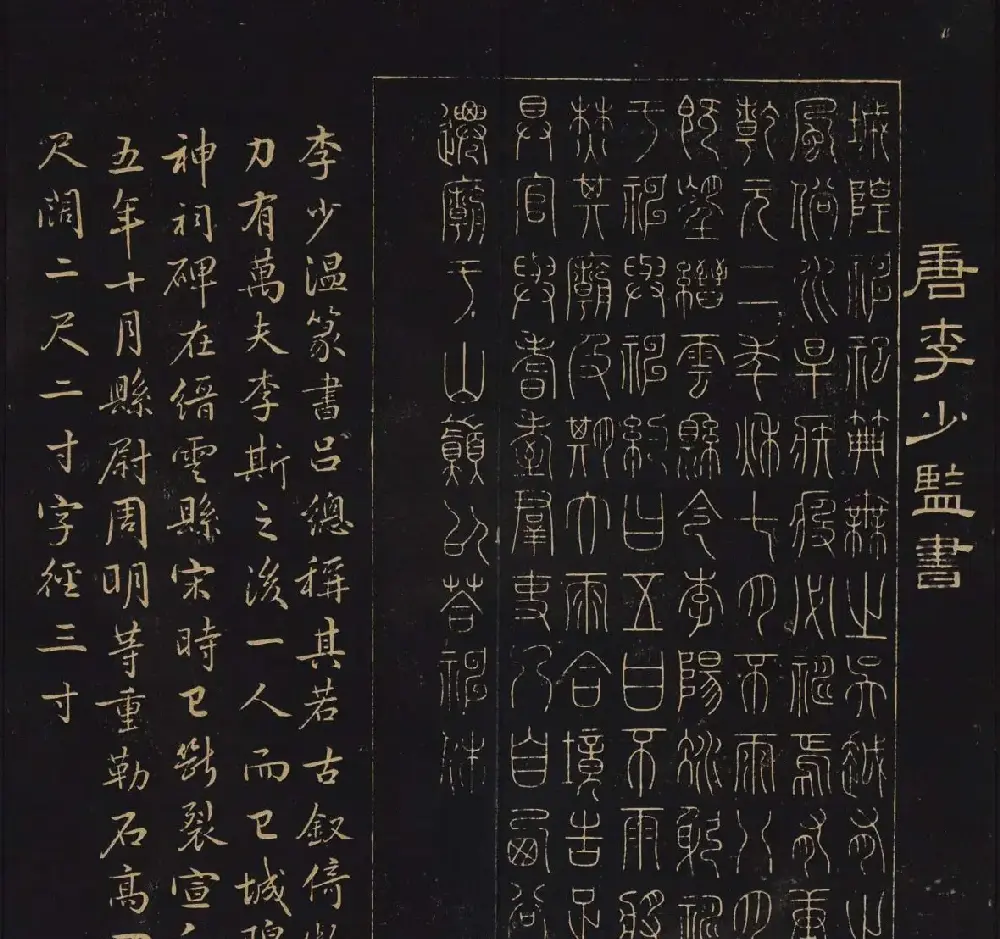 唐李少監書
城隍神祀典無之吳越有之
風俗水旱疾疫必禱焉有唐
乾元二年秋七月不雨八月
既望縉雲縣令李陽冰躬祈
于神與神約曰五日不雨將
焚其廟及期大雨合境告足
具官與耆耋群吏乃自西谷
遷廟于山巔以答神休
李少溫篆書呂總稱其若古釵倚物
力有萬夫李斯之後一人而已城隍
神祠碑在縉雲縣宋時已斷裂宣和
五年十月縣尉周明等重勒石高
尺闊二尺二寸字徑三寸